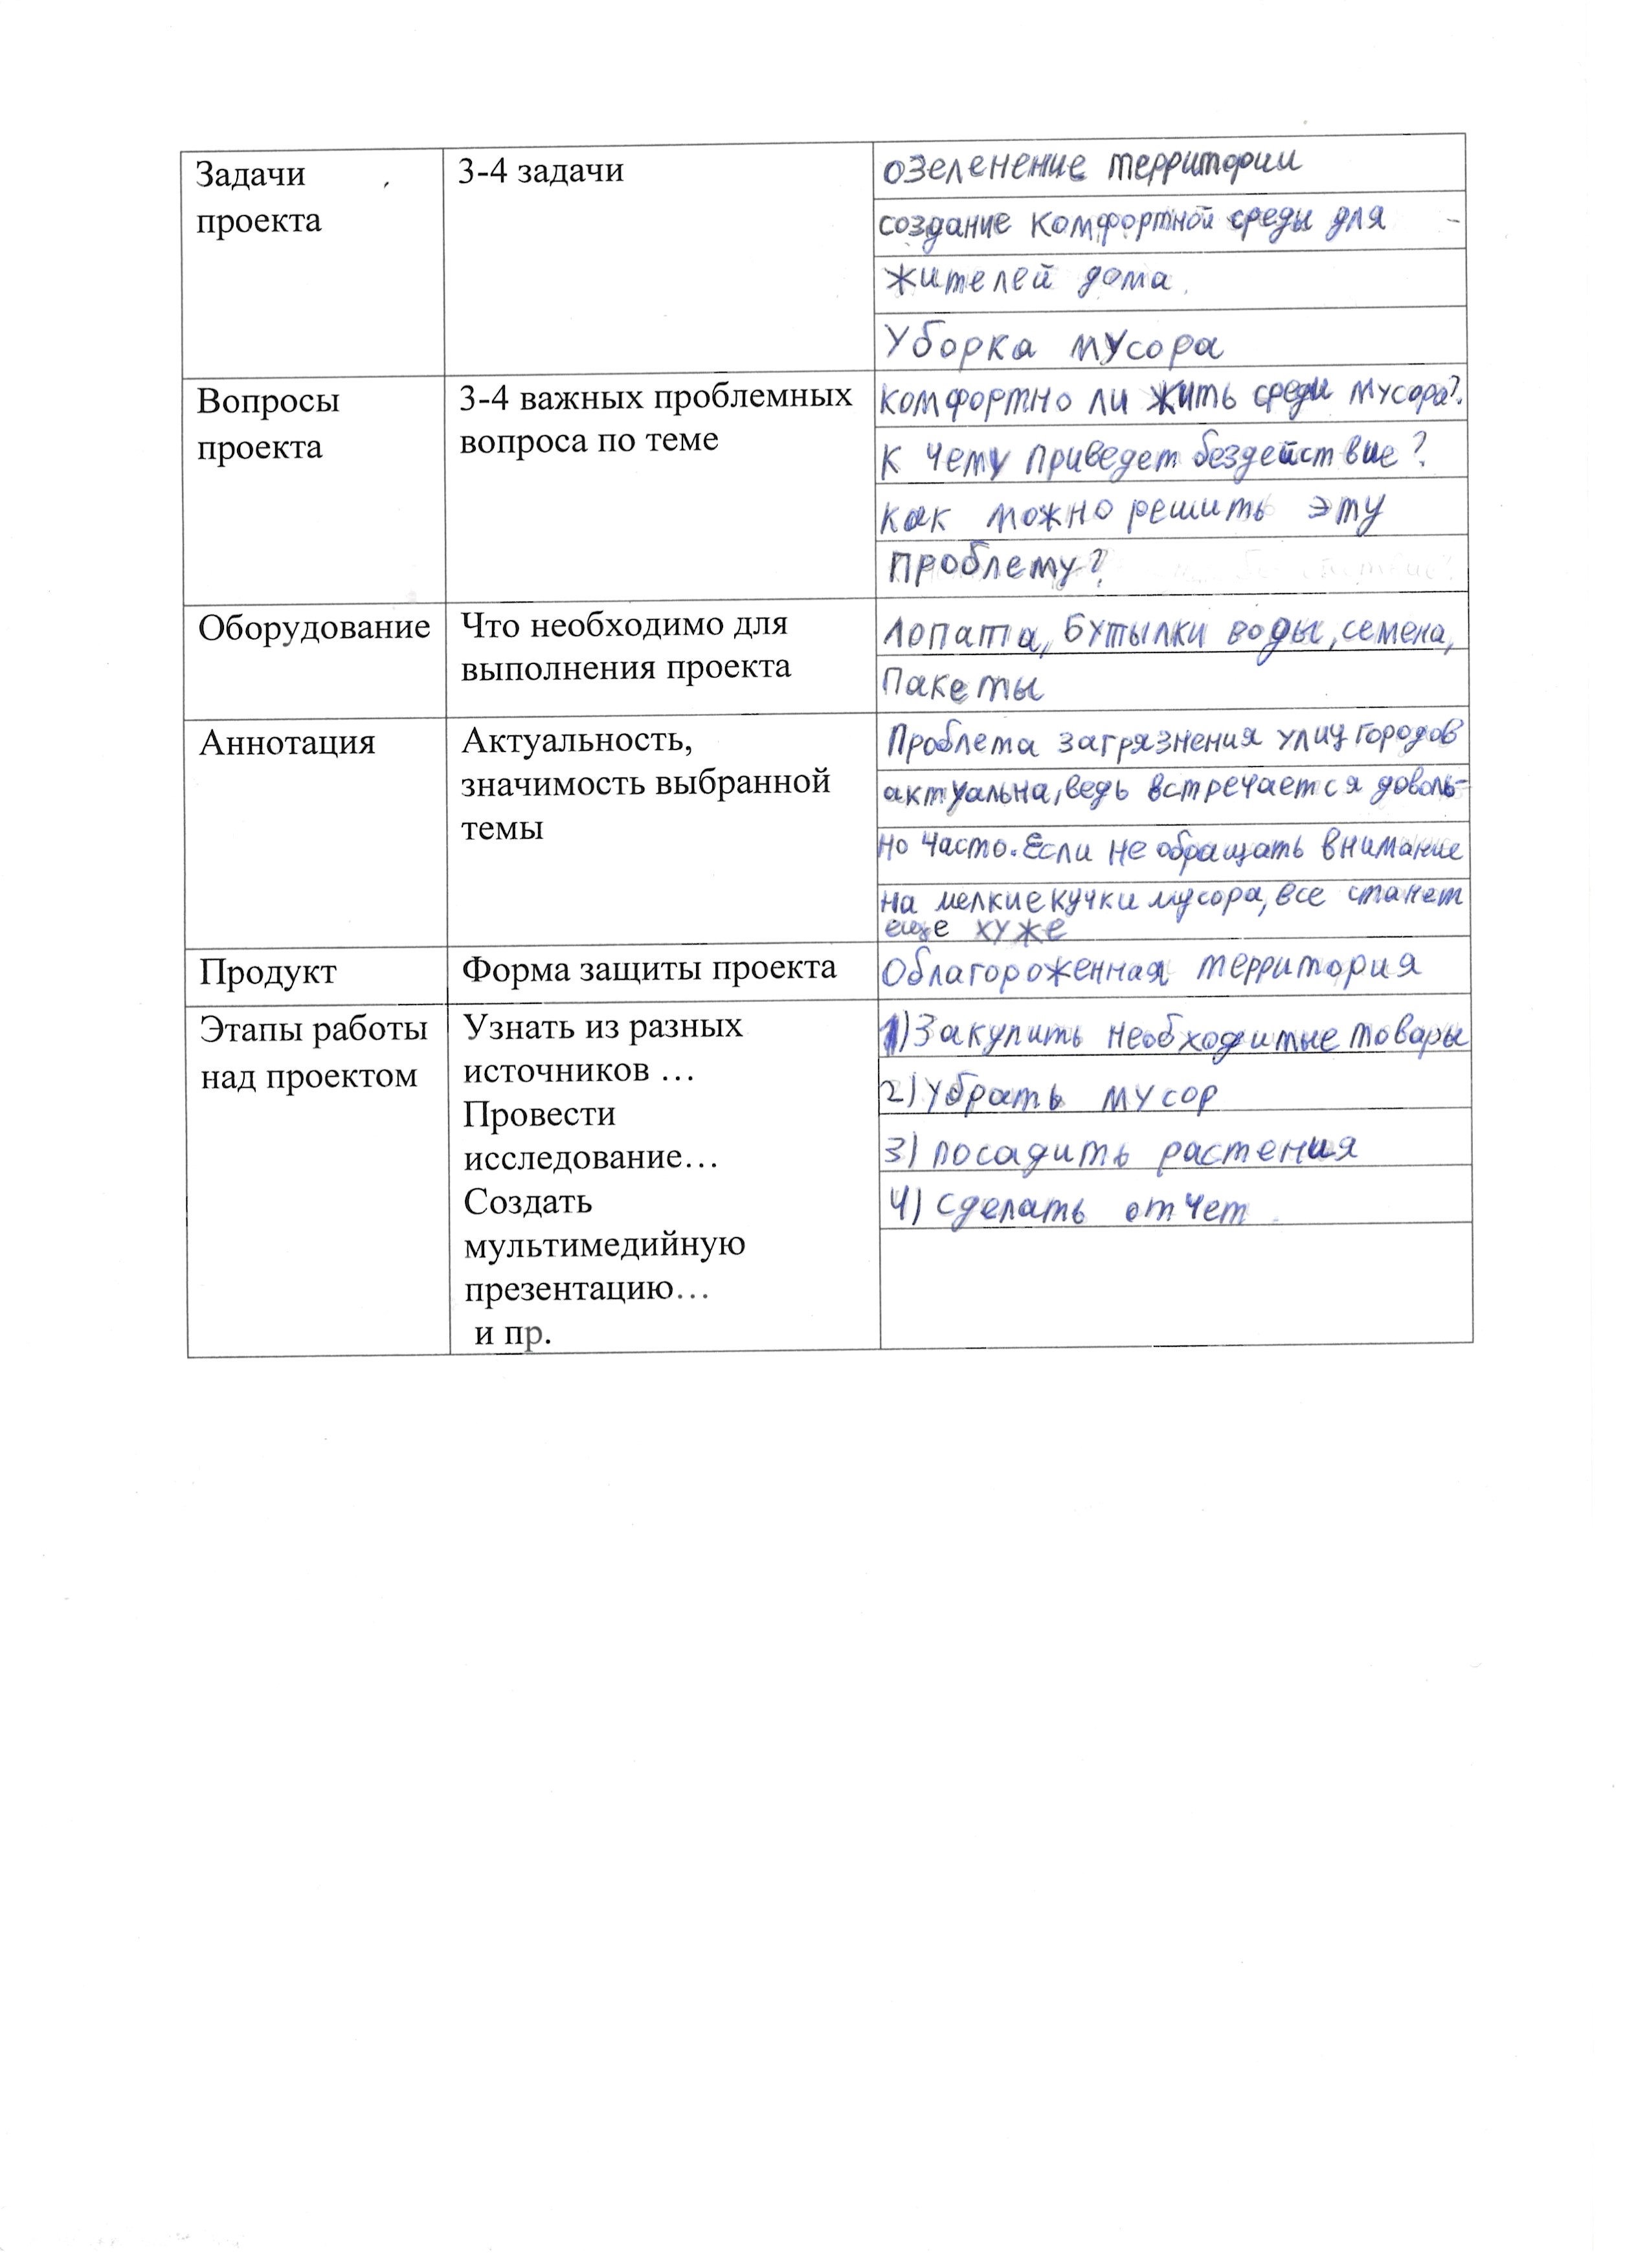 Задачи
проекта
3-4 задачи
озеленение территории
создание комфортной среды для
жителей дома.
Уборка мусора
Вопросы
проекта
3-4 важных проблемных
вопроса по теме
комфортно ли жить среди мусора?
К чему приведет бездействие?
Как можно решить эту
проблему?
Оборудование
Что необходимо для
выполнения проекта
Лопата, бутылки воды, семена,
Пакеты
Аннотация
Актуальность,
значимость выбранной
темы
Проблема загрязнения улиц городов
актуальна, ведь встречается доволь-
но часто. Если не обращать внимание
на мелкие кучки мусора, все станет
еще хуже
Продукт
Форма защиты проекта
Облагороженная территория
Этапы работы
над проектом
Узнать из разных
источников …
Провести
исследование…
Создать
мультимедийную
презентацию…
и пр.
1) Закупить необходимые товары
2) убрать мусор
3) посадить растения
4) сделать отчет